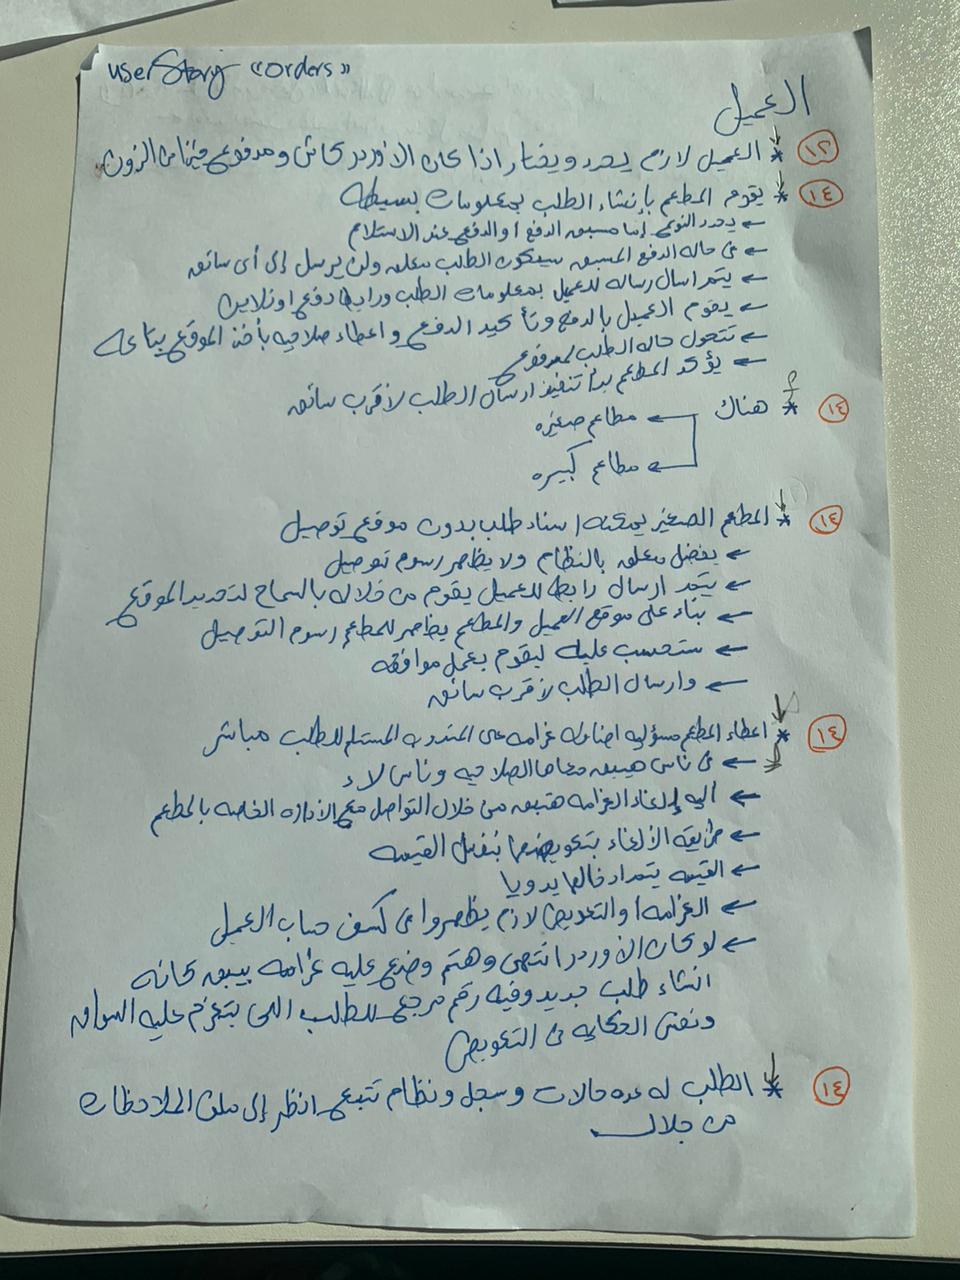 userStory «Orders»
العميل
١٢ * العميل لازم يحدد ويختار اذا كان الأوردر كاش ومدفوع من الزبون
١٤ * يقوم المطعم بإنشاء الطلب بمعلومات بسيطه
← يحدد النوع إما مسبق الدفع أو الدفع عند الاستلام
← فى حاله الدفع المسبق سيكون الطلب معلق ولن يرسل إلى أى سائق
← يتم ارسال رساله للعميل بمعلومات الطلب ورابط دفع اونلاين
← يقوم العميل بالدفع وتأكيد الدفع واعطاء صلاحيه بأخذ الموقع بتاعه
← تتحول حاله الطلب لمدفوع
← يؤكد المطعم بدأ تنفيذ ارسال الطلب لأقرب سائق
١٤ * هناك ← مطاعم صغيره
← مطاعم كبيره
١٤ * المطعم الصغير يمكنه اسناد طلب بدون موقع توصيل
← يفضل معلق بالنظام ولا يظهر رسوم توصيل
← يتم ارسال رابط للعميل يقوم من خلاله بالسماح لتحديد الموقع
← بناء على موقع العميل والمطعم يظهر للمطعم رسوم التوصيل
← ستحسب عليه ليقوم بعمل موافقه
← وارسال الطلب لأقرب سائق
١٤ * اعطاء المطعم مسؤليه اضافه غرامه على المندوب المستلم للطلب مباشر
← فى ناس هيبقه معاها الصلاحيه وناس لاء
← أليه إلغاء الغرامه هتبقه من خلال التواصل مع الأداره الخاصه بالمطعم
← طريقه الألغاء بتعويضها بنفس القيمه
← القيمه يتم ادخالها يدويا
← الغرامه او التعويض لازم يظهروا فى كشف حساب العميل
← لو كان الأوردر انتهى وهتم وضع عليه غرامه يبقه كانه
انشاء طلب جديد وفيه رقم مرجعى للطلب اللى بتغرم عليه السواق
ونفس الحكايه فى التعويض
١٤ * الطلب له عده حالات وسجل ونظام تتبع انظر إلى ملف الملاحظات
من جلال